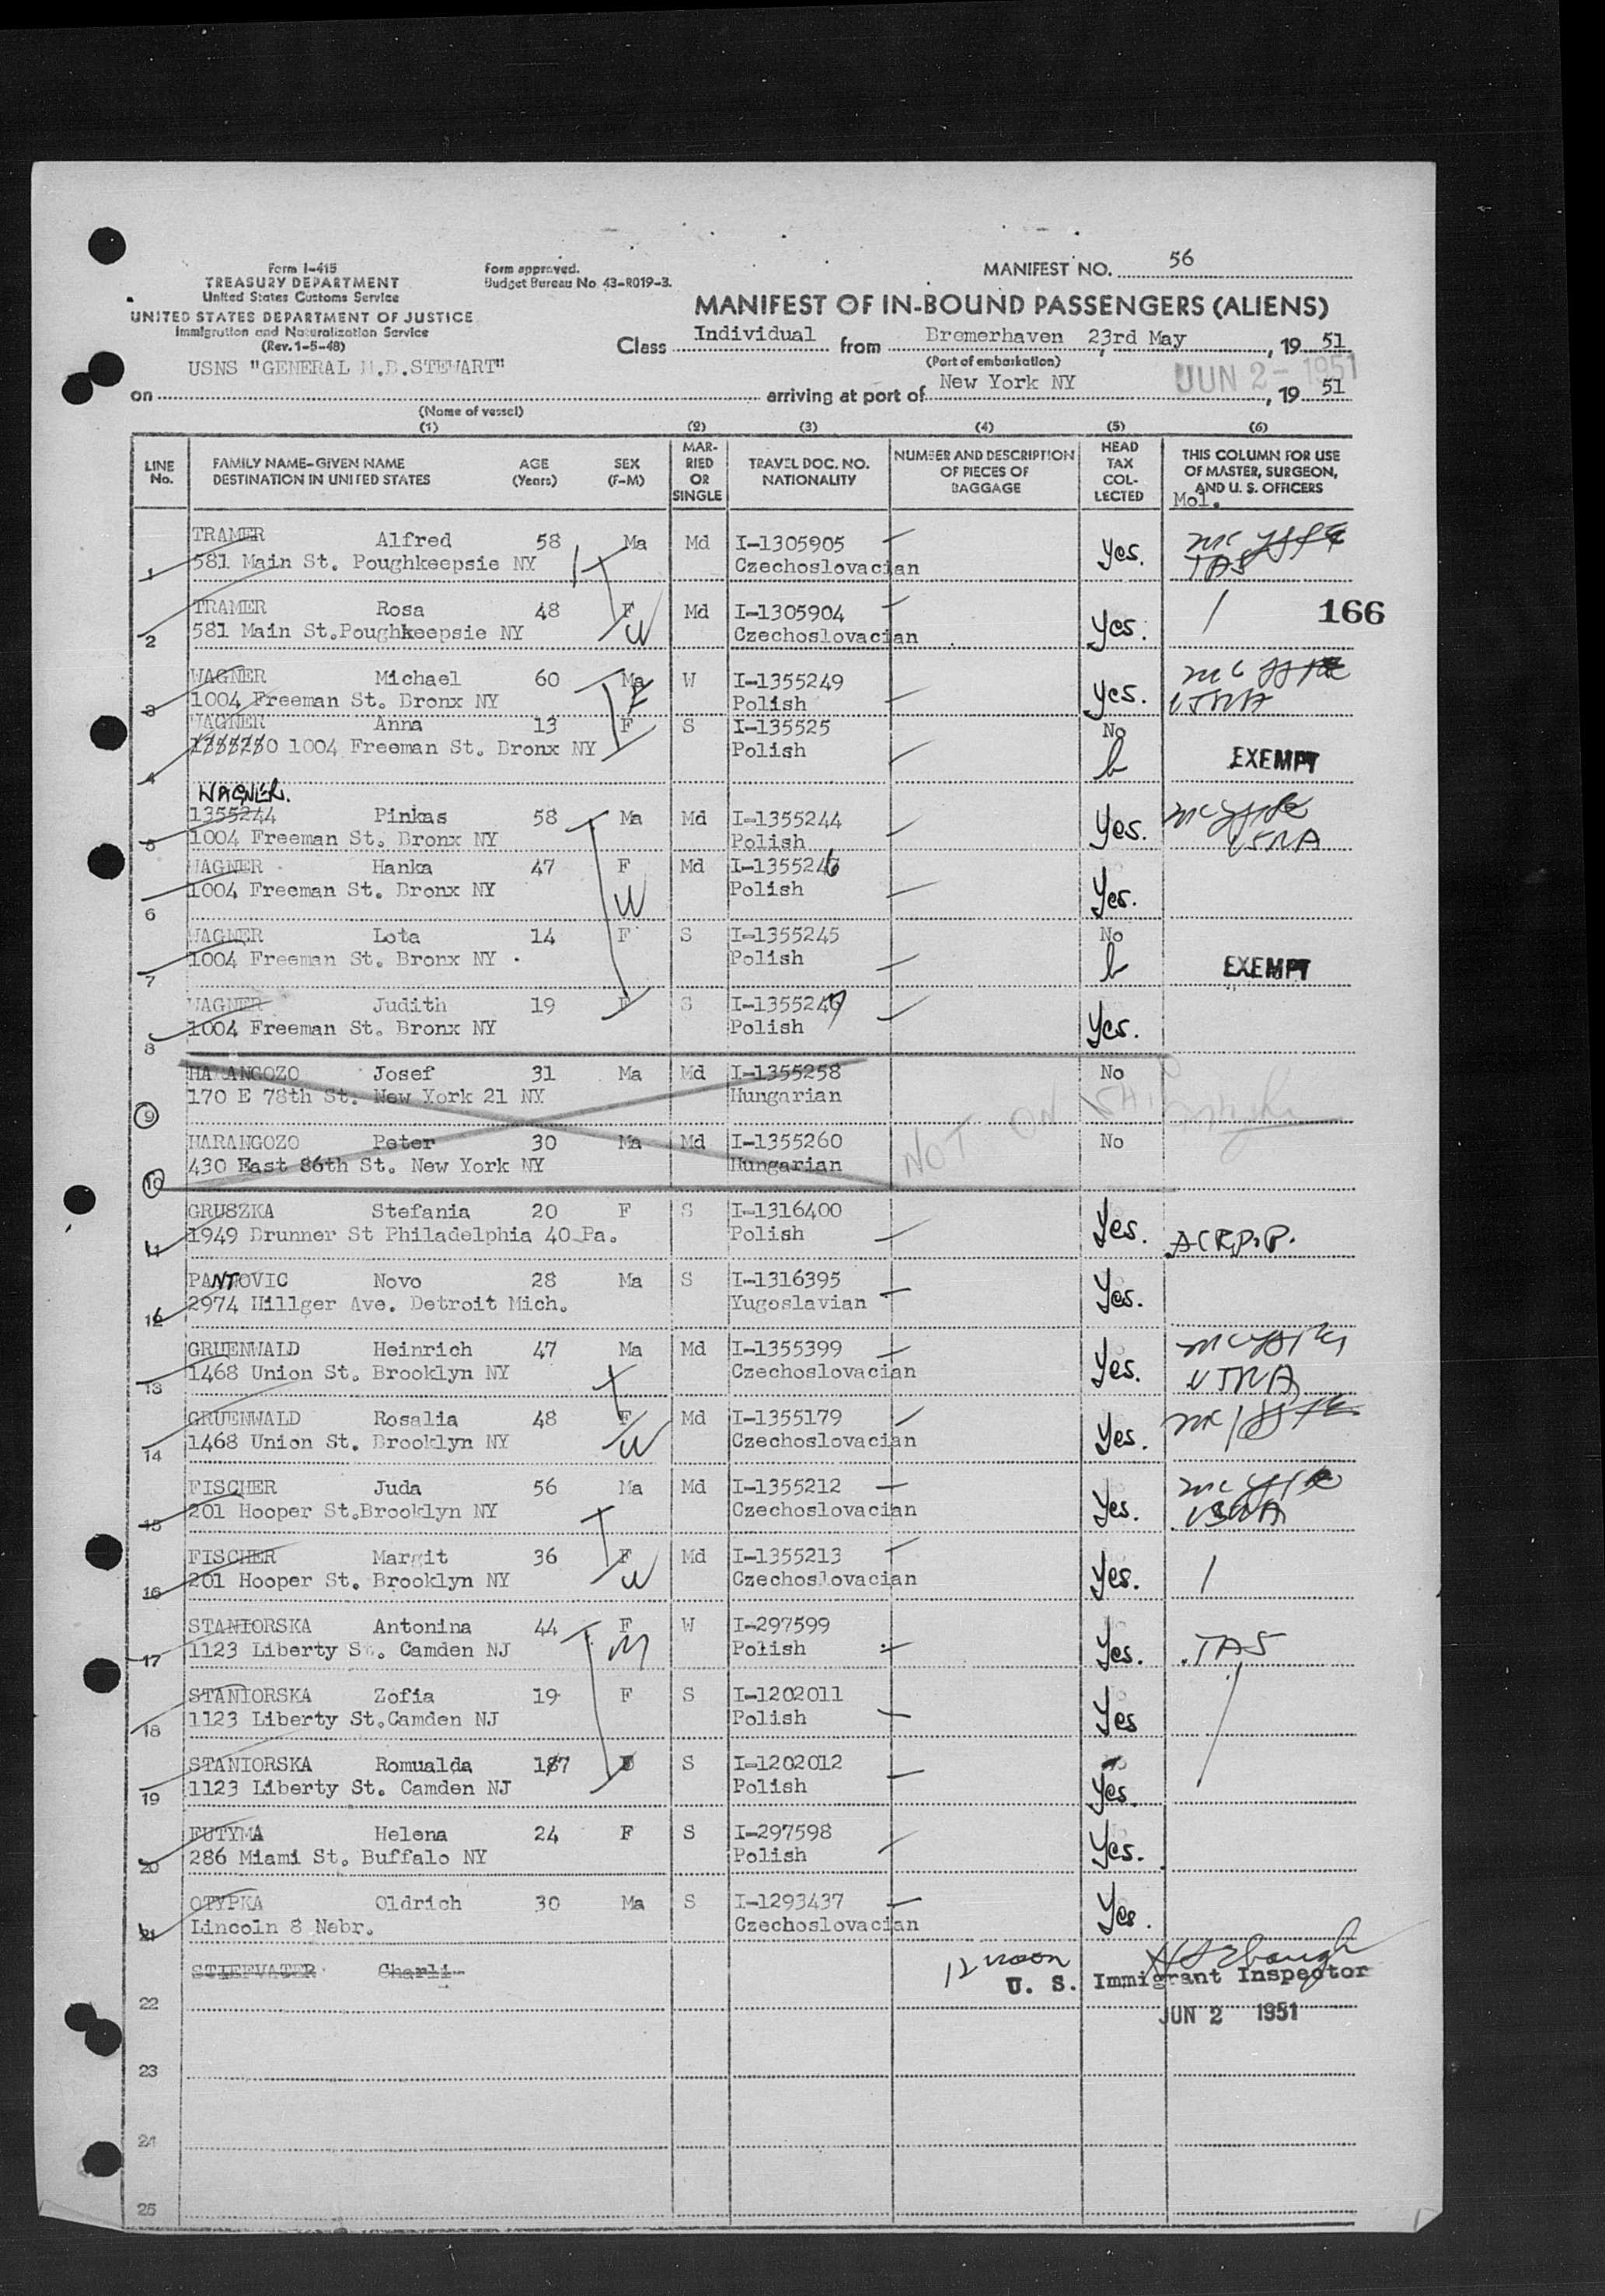 Form I-415
TREASURY DEPARTMENT
United States Customs Service
UNITED STATES DEPARTMENT OF JUSTICE
Immigration and Naturalization Service
(Rev. 1-5-48)
Form approved.
Budget Bureau No. 43-R019-3.
MANIFEST NO. 56
MANIFEST OF IN-BOUND PASSENGERS (ALIENS)
Class Individual from Bremerhaven 23rd May, 1951
(Port of embarkation)
USNS "GENERAL M.B.STEWART"
on arriving at port of New York NY JUN 2 - 1951, 1951
(Name of vessel)
(1) (2) (3) (4) (5) (6)
LINE No. FAMILY NAME-GIVEN NAME DESTINATION IN UNITED STATES AGE (Years) SEX (F-M) MARRIED OR SINGLE TRAVEL DOC. NO. NATIONALITY NUMBER AND DESCRIPTION OF PIECES OF BAGGAGE HEAD TAX COLLECTED THIS COLUMN FOR USE OF MASTER, SURGEON, AND U. S. OFFICERS
Mol.
TRAMER Alfred 58 Ma Md I-1305905
1 581 Main St. Poughkeepsie NY Czechoslovacian Yes. TAS
TRAMER Rosa 48 F Md I-1305904 166
2 581 Main St.Poughkeepsie NY W Czechoslovacian Yes.
WAGNER Michael 60 Ma W I-1355249
3 1004 Freeman St. Bronx NY Polish Yes.
WAGNER Anna 13 F S I-135525 No
4 1355250 1004 Freeman St. Bronx NY Polish EXEMPT
WAGNER.
1355244 Pinkas 58 Ma Md I-1355244
5 1004 Freeman St. Bronx NY Polish Yes.
WAGNER Hanka 47 F Md I-1355246
6 1004 Freeman St. Bronx NY W Polish Yes.
WAGNER Lota 14 F S I-1355245 No
7 1004 Freeman St. Bronx NY Polish EXEMPT
WAGNER Judith 19 F S I-1355247
8 1004 Freeman St. Bronx NY Polish Yes.
HARANGOZO Josef 31 Ma Md I-1355258 No
9 170 E 78th St. New York 21 NY Hungarian
NOT ON SHIP
HARANGOZO Peter 30 Ma Md I-1355260 No
10 430 East 86th St. New York NY Hungarian
GRUSZKA Stefania 20 F S I-1316400
11 1949 Brunner St Philadelphia 40 Pa. Polish Yes. ACRP.P.
PANTOVIC Novo 28 Ma S I-1316395
12 2974 Hillger Ave. Detroit Mich. Yugoslavian Yes.
GRUENWALD Heinrich 47 Ma Md I-1355399
13 1468 Union St. Brooklyn NY Czechoslovacian Yes.
GRUENWALD Rosalia 48 F Md I-1355179
14 1468 Union St. Brooklyn NY W Czechoslovacian Yes.
FISCHER Juda 56 Ma Md I-1355212
15 201 Hooper St.Brooklyn NY Czechoslovacian Yes.
FISCHER Margit 36 F Md I-1355213
16 201 Hooper St. Brooklyn NY W Czechoslovacian Yes.
STANIORSKA Antonina 44 F W I-297599
17 1123 Liberty St. Camden NJ M Polish Yes. TAS
STANIORSKA Zofia 19 F S I-1202011
18 1123 Liberty St.Camden NJ Polish Yes
STANIORSKA Romualda 187 S I-1202012
19 1123 Liberty St. Camden NJ Polish Yes.
FUTYMA Helena 24 F S I-297598
20 286 Miami St. Buffalo NY Polish Yes.
OTYPKA Oldrich 30 Ma S I-1293437
21 Lincoln 8 Nebr. Czechoslovacian Yes.
STIEFVATER Charli 12 noon
22 U. S. Immigrant Inspector
JUN 2 1951
23
24
25